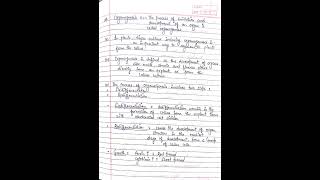 Organogenesis is the process of initiation and
development of an organ is
called organogenesis.
In plant tissue culture inducing organogenesis is
an important way to regenerate plants
from the culture
Organogenesis is defined as the development of organs
like roots, shoots and flowers either
directly from an explant or from the
callus culture.
The process of organogenesis involves two steps :
Dedifferentiation
Redifferentiation
Dedifferentiation : Dedifferentiation results in the
formation of callus from the explant tissue
with cell division
Redifferentiation : means the development of organ
structure in the
stage of development, from a
of callus cells
Growth : Auxin ↑ = Root formed
Cytokinin ↑ = Shoot formed